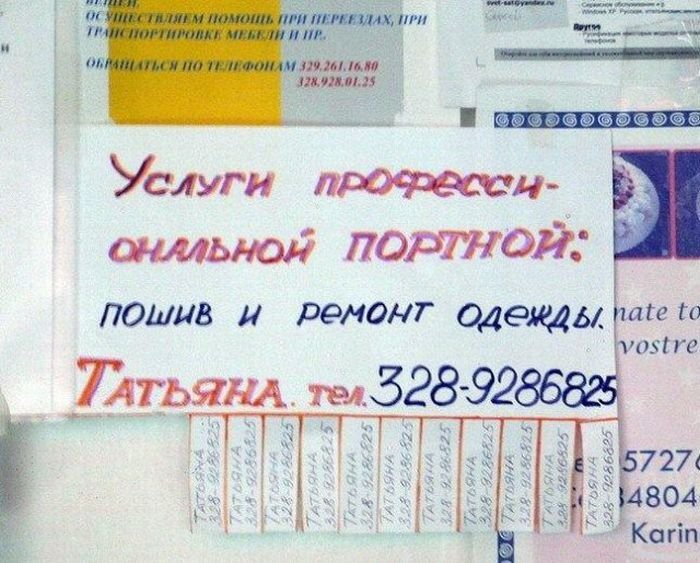 ОСУЩЕСТВЛЯЕМ ПОМОЩЬ ПРИ ПЕРЕЕЗДАХ, ПРИ
ТРАНСПОРТИРОВКЕ МЕБЕЛИ И ПР..
ОБРАЩАТЬСЯ ПО ТЕЛЕФОНАМ 329.261.16.80
328.928.01.25
svet-sat@yandex.ru
Сервисное обслуживание
Windows XP. Русская,
Другое
телефонов
Услуги професси-
ональной ПОРТНОЙ:
пошив и ремонт одежды.
Татьяна. тел. 328-9286825
nate to
vostre
5727
34804
Karin
Татьяна 328-9286825
Татьяна 328-9286825
Татьяна 328-9286825
Татьяна 328-9286825
Татьяна 328-9286825
Татьяна 328-9286825
Татьяна 328-9286825
Татьяна 328-9286825
Татьяна 328-9286825
Татьяна 328-9286825
Татьяна 328-9286825